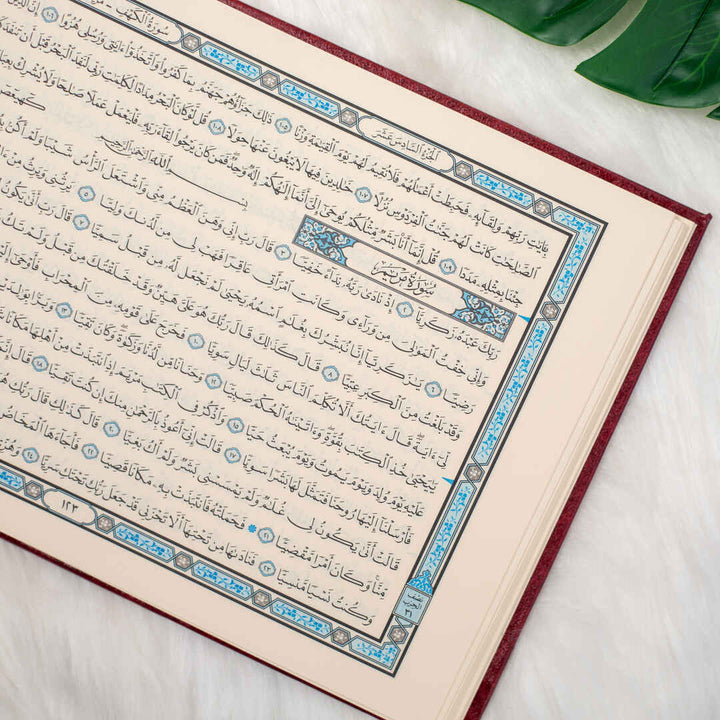 الجُزْءُ السَّادِسَ عَشَرَ
سُورَةُ الكَهْفِ
بِـَٔايَٰتِ رَبِّهِمْ وَلِقَآئِهِۦ فَحَبِطَتْ أَعْمَٰلُهُمْ فَلَا نُقِيمُ لَهُمْ يَوْمَ ٱلْقِيَٰمَةِ وَزْنًا ١٠٥ ذَٰلِكَ جَزَآؤُهُمْ جَهَنَّمُ بِمَا كَفَرُوا۟ وَٱتَّخَذُوٓا۟ ءَايَٰتِى وَرُسُلِى هُزُوًا ١٠٦ إِنَّ ٱلَّذِينَ
ٱلصَّٰلِحَٰتِ كَانَتْ لَهُمْ جَنَّٰتُ ٱلْفِرْدَوْسِ نُزُلًا ١٠٧ خَٰلِدِينَ فِيهَا لَا يَبْغُونَ عَنْهَا حِوَلًا ١٠٨ قُل لَّوْ كَانَ ٱلْبَحْرُ مِدَادًا لِّكَلِمَٰتِ رَبِّى لَنَفِدَ ٱلْبَحْرُ قَبْلَ أَن تَنفَدَ
جِئْنَا بِمِثْلِهِۦ مَدَدًا ١٠٩ قُلْ إِنَّمَآ أَنَا۠ بَشَرٌ مِّثْلُكُمْ يُوحَىٰٓ إِلَىَّ أَنَّمَآ إِلَٰهُكُمْ إِلَٰهٌ وَٰحِدٌ فَمَن كَانَ يَرْجُوا۟ لِقَآءَ رَبِّهِۦ فَلْيَعْمَلْ عَمَلًا صَٰلِحًا وَلَا يُشْرِكْ
سُورَةُ مَرْيَمَ
بِسْمِ ٱللَّهِ ٱلرَّحْمَٰنِ ٱلرَّحِيمِ
كٓهيعٓصٓ
رَبِّكَ عَبْدَهُۥ زَكَرِيَّآ ٢ إِذْ نَادَىٰ رَبَّهُۥ نِدَآءً خَفِيًّا ٣ قَالَ رَبِّ إِنِّى وَهَنَ ٱلْعَظْمُ مِنِّى وَٱشْتَعَلَ ٱلرَّأْسُ شَيْبًا وَلَمْ أَكُنۢ
وَإِنِّى خِفْتُ ٱلْمَوَٰلِىَ مِن وَرَآءِى وَكَانَتِ ٱمْرَأَتِى عَاقِرًا فَهَبْ لِى مِن لَّدُنكَ وَلِيًّا ٥ يَرِثُنِى وَيَرِثُ مِنْ
رَضِيًّا ٦ يَٰزَكَرِيَّآ إِنَّا نُبَشِّرُكَ بِغُلَٰمٍ ٱسْمُهُۥ يَحْيَىٰ لَمْ نَجْعَل لَّهُۥ مِن قَبْلُ سَمِيًّا ٧ قَالَ رَبِّ أَنَّىٰ يَكُونُ
وَقَدْ بَلَغْتُ مِنَ ٱلْكِبَرِ عِتِيًّا ٨ قَالَ كَذَٰلِكَ قَالَ رَبُّكَ هُوَ عَلَىَّ هَيِّنٌ وَقَدْ خَلَقْتُكَ مِن قَبْلُ وَلَمْ تَكُ
لِّىٓ ءَايَةً قَالَ ءَايَتُكَ أَلَّا تُكَلِّمَ ٱلنَّاسَ ثَلَٰثَ لَيَالٍ سَوِيًّا ١٠ فَخَرَجَ عَلَىٰ قَوْمِهِۦ مِنَ ٱلْمِحْرَابِ فَأَوْحَىٰٓ
يَٰيَحْيَىٰ خُذِ ٱلْكِتَٰبَ بِقُوَّةٍ وَءَاتَيْنَٰهُ ٱلْحُكْمَ صَبِيًّا ١٢ وَحَنَانًا مِّن لَّدُنَّا وَزَكَوٰةً وَكَانَ تَقِيًّا ١٣ وَبَرًّۢا بِوَٰلِدَيْهِ
عَلَيْهِ يَوْمَ وُلِدَ وَيَوْمَ يَمُوتُ وَيَوْمَ يُبْعَثُ حَيًّا ١٥ وَٱذْكُرْ فِى ٱلْكِتَٰبِ مَرْيَمَ إِذِ ٱنتَبَذَتْ مِنْ أَهْلِهَا مَكَانًا
فَأَرْسَلْنَآ إِلَيْهَا رُوحَنَا فَتَمَثَّلَ لَهَا بَشَرًا سَوِيًّا ١٧ قَالَتْ إِنِّىٓ أَعُوذُ بِٱلرَّحْمَٰنِ مِنكَ إِن كُنتَ تَقِيًّا ١٨ قَالَ إِنَّمَآ
قَالَتْ أَنَّىٰ يَكُونُ لِى غُلَٰمٌ وَلَمْ يَمْسَسْنِى بَشَرٌ وَلَمْ أَكُ بَغِيًّا ٢٠ قَالَ كَذَٰلِكِ قَالَ رَبُّكِ هُوَ
مِّنَّا وَكَانَ أَمْرًا مَّقْضِيًّا ٢١ فَحَمَلَتْهُ فَٱنتَبَذَتْ بِهِۦ مَكَانًا قَصِيًّا ٢٢ فَأَجَآءَهَا ٱلْمَخَاضُ
وَكُنتُ نَسْيًا مَّنسِيًّا ٢٣ فَنَادَىٰهَا مِن تَحْتِهَآ أَلَّا تَحْزَنِى قَدْ جَعَلَ رَبُّكِ تَحْتَكِ سَرِيًّا ٢٤ وَهُزِّىٓ
نصف الحزب ٣١
١٢٣